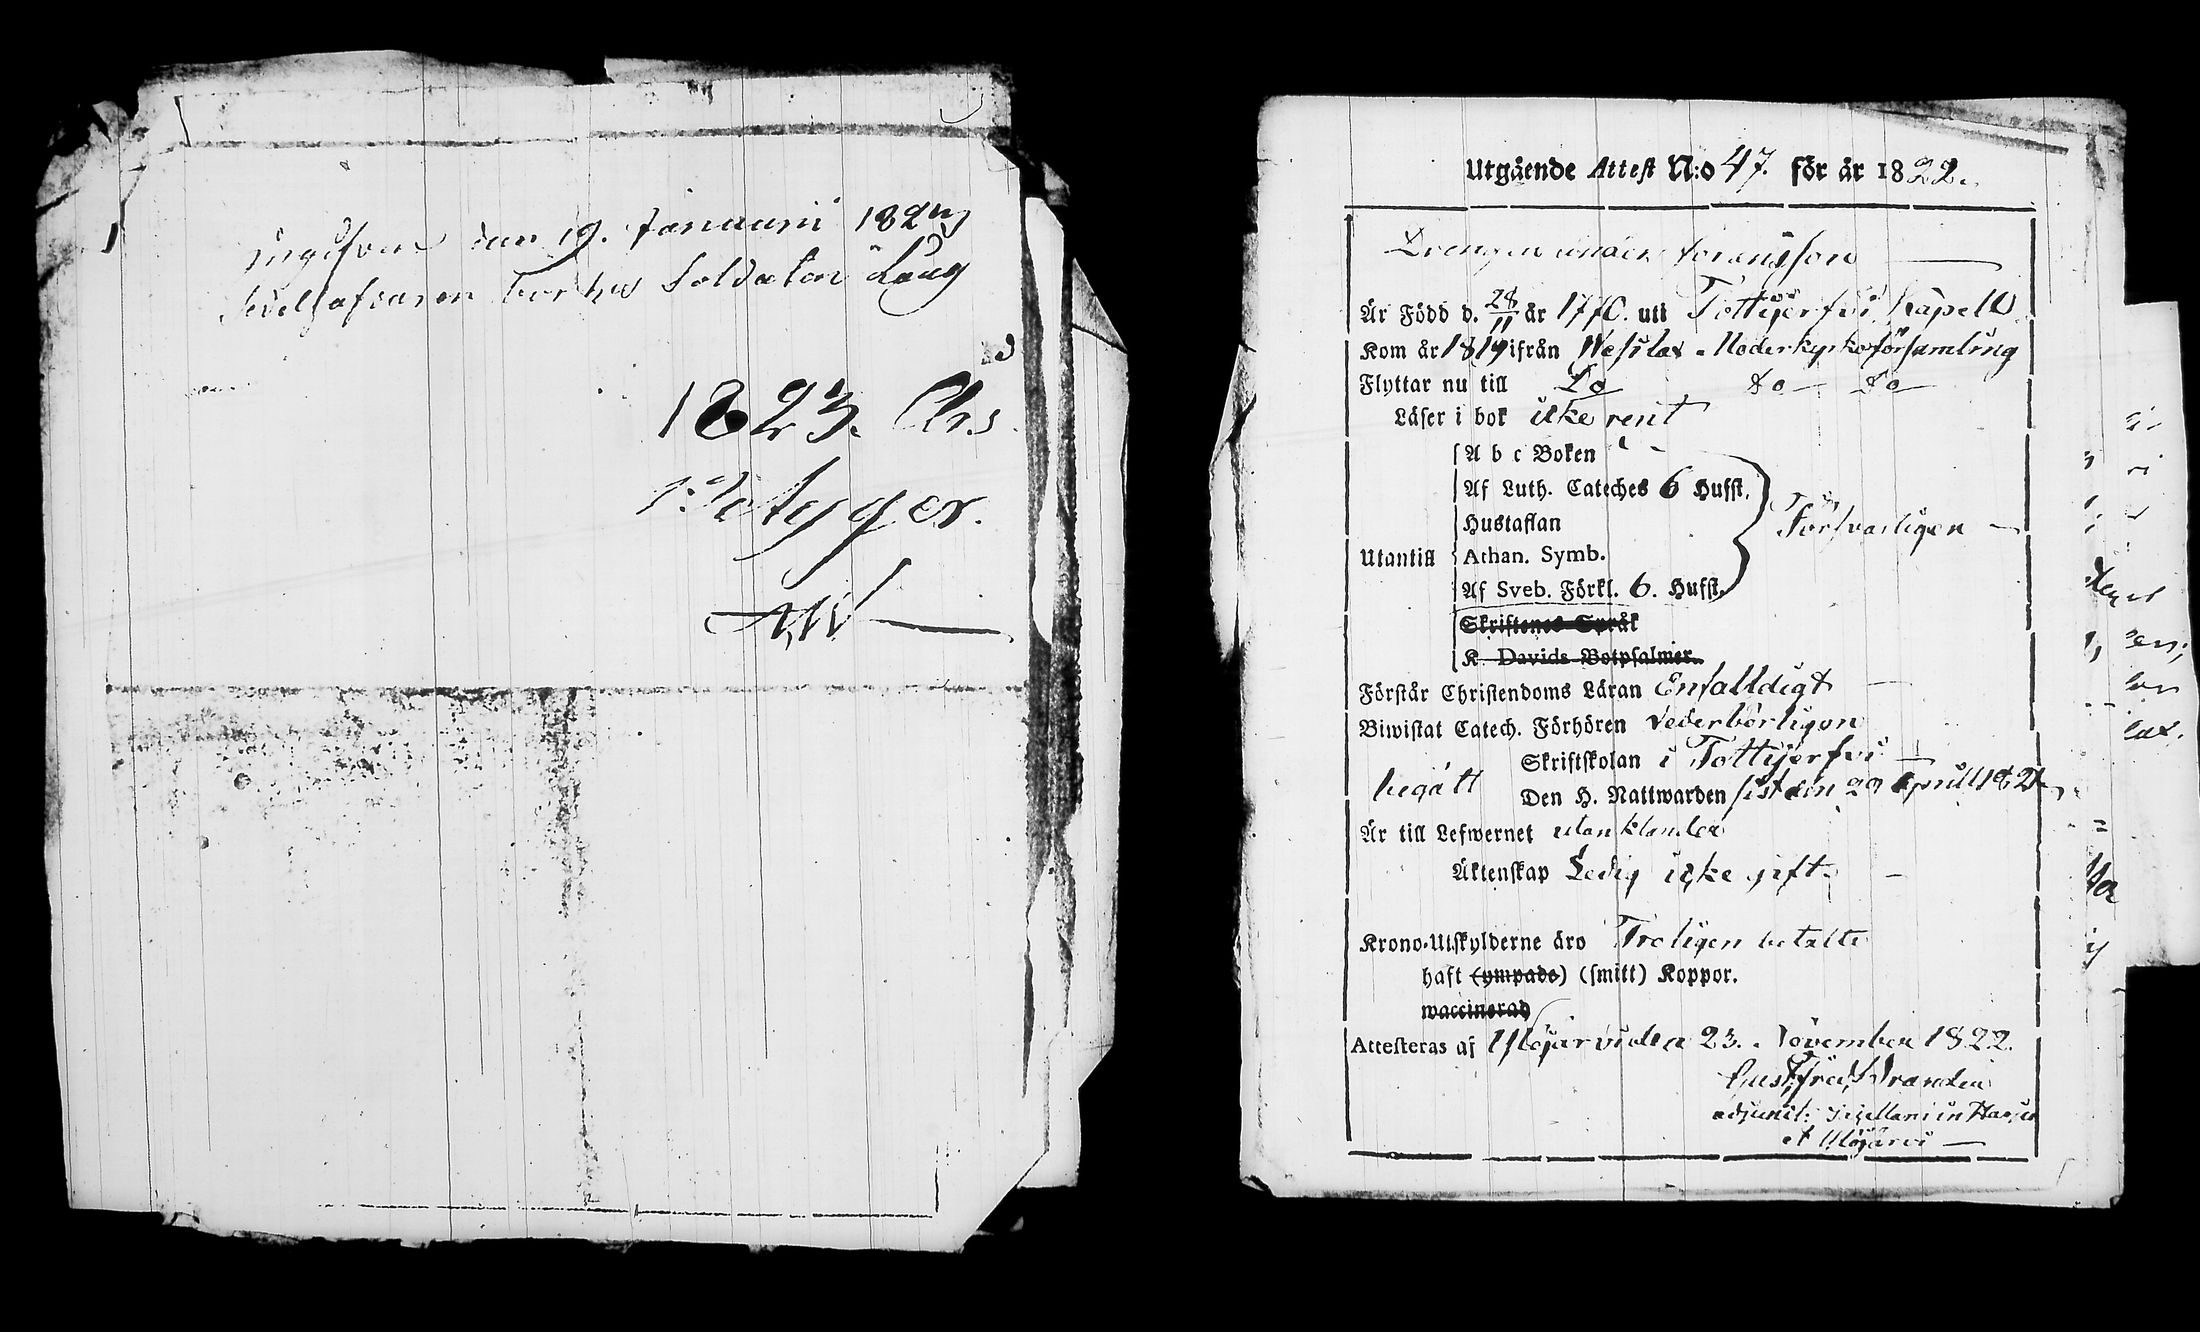 den 19. Januarii 182
hos Soldaten Laug
1823. Chs
Betyger.
Utgående Attest N:o 47. för år 1822.
Drengen Anders Göransson
Är Född d. 28/11 år 1770. uti Tottijerfvi Kapell
Kom år 1819 ifrån Wesilax Moderkyrkoförsamling
Flyttar nu till Do do do
Läser i bok icke rent
A b c Boken
Af Luth. Cateches 6 Hufst.
Hustaflan
Försvarligen
Utantill Athan. Symb.
Af Sveb. Förkl. 6. Hufst.
Skriftenes Språk
K. Davids Botpsalmer.
Förstår Christendoms Läran Enfalldigt
Biwistat Catech. Förhören Vederbörligen
Skriftskolan i Tottijerfvi
begått Den H. Nattwarden sist den 29 April 1821
Är till Lefwernet utan klander
Äktenskap Ledig icke gift
Krono-Utskylderne äro Troligen betalte
haft (ympade) (smitt) Koppor.
waccinerad
Attesteras af Ylöjärvi den 23. November 1822.
Gust. Fred.
adjunct: Sacellani in
et Ylöjärvi